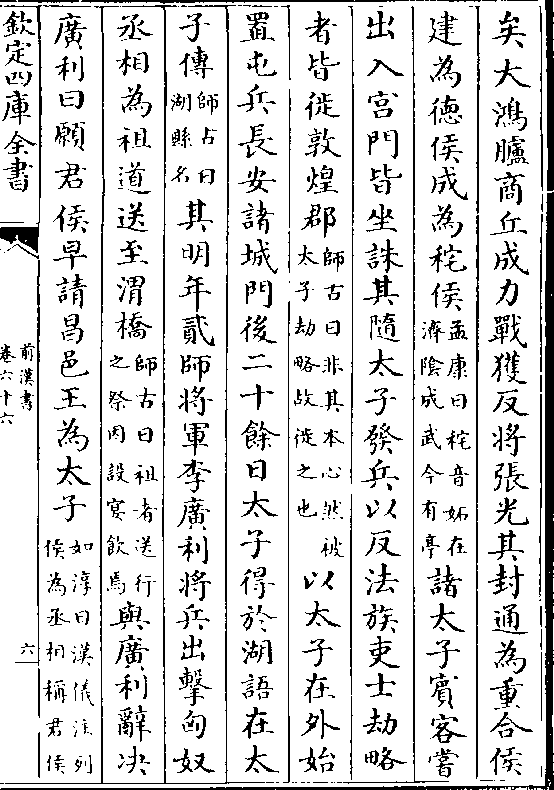 矣大鴻臚商丘成力戰獲反將張光其封通為重合侯
建為德侯成為秺侯孟康曰秺音妬在濟隂成武今有亭諸太子賓客嘗
出入宫門皆坐誅其隨太子發兵以反法族吏士劫略
者皆徙敦煌郡師古曰非其本心然被太子劫略故徙之也以太子在外始
置屯兵長安諸城門後二十餘日太子得於湖語在太
子傳師古曰湖縣名其明年貳師將軍李廣利將兵出擊匈奴
丞相為祖道送至渭橋師古曰祖者送行之祭因設宴飲焉與廣利辭决
廣利曰願君侯早請昌邑王為太子如淳曰漢儀注列侯為丞相稱君侯
欽定四庫全書
前漢書
卷六十六
六